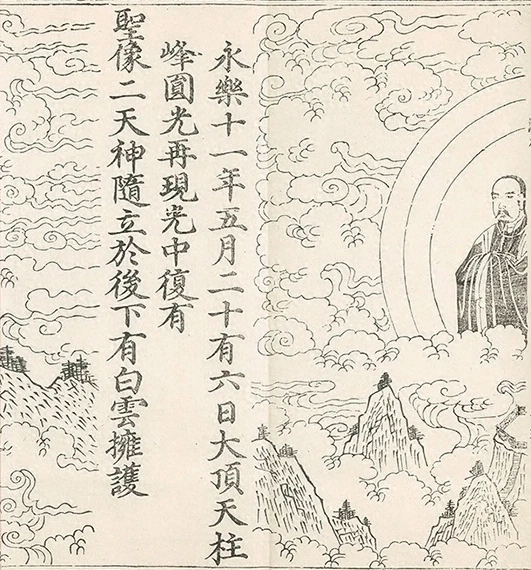 永樂十一年五月二十有六日大頂天柱
峰圓光再現光中復有
聖像二天神隨立於後下有白雲擁護